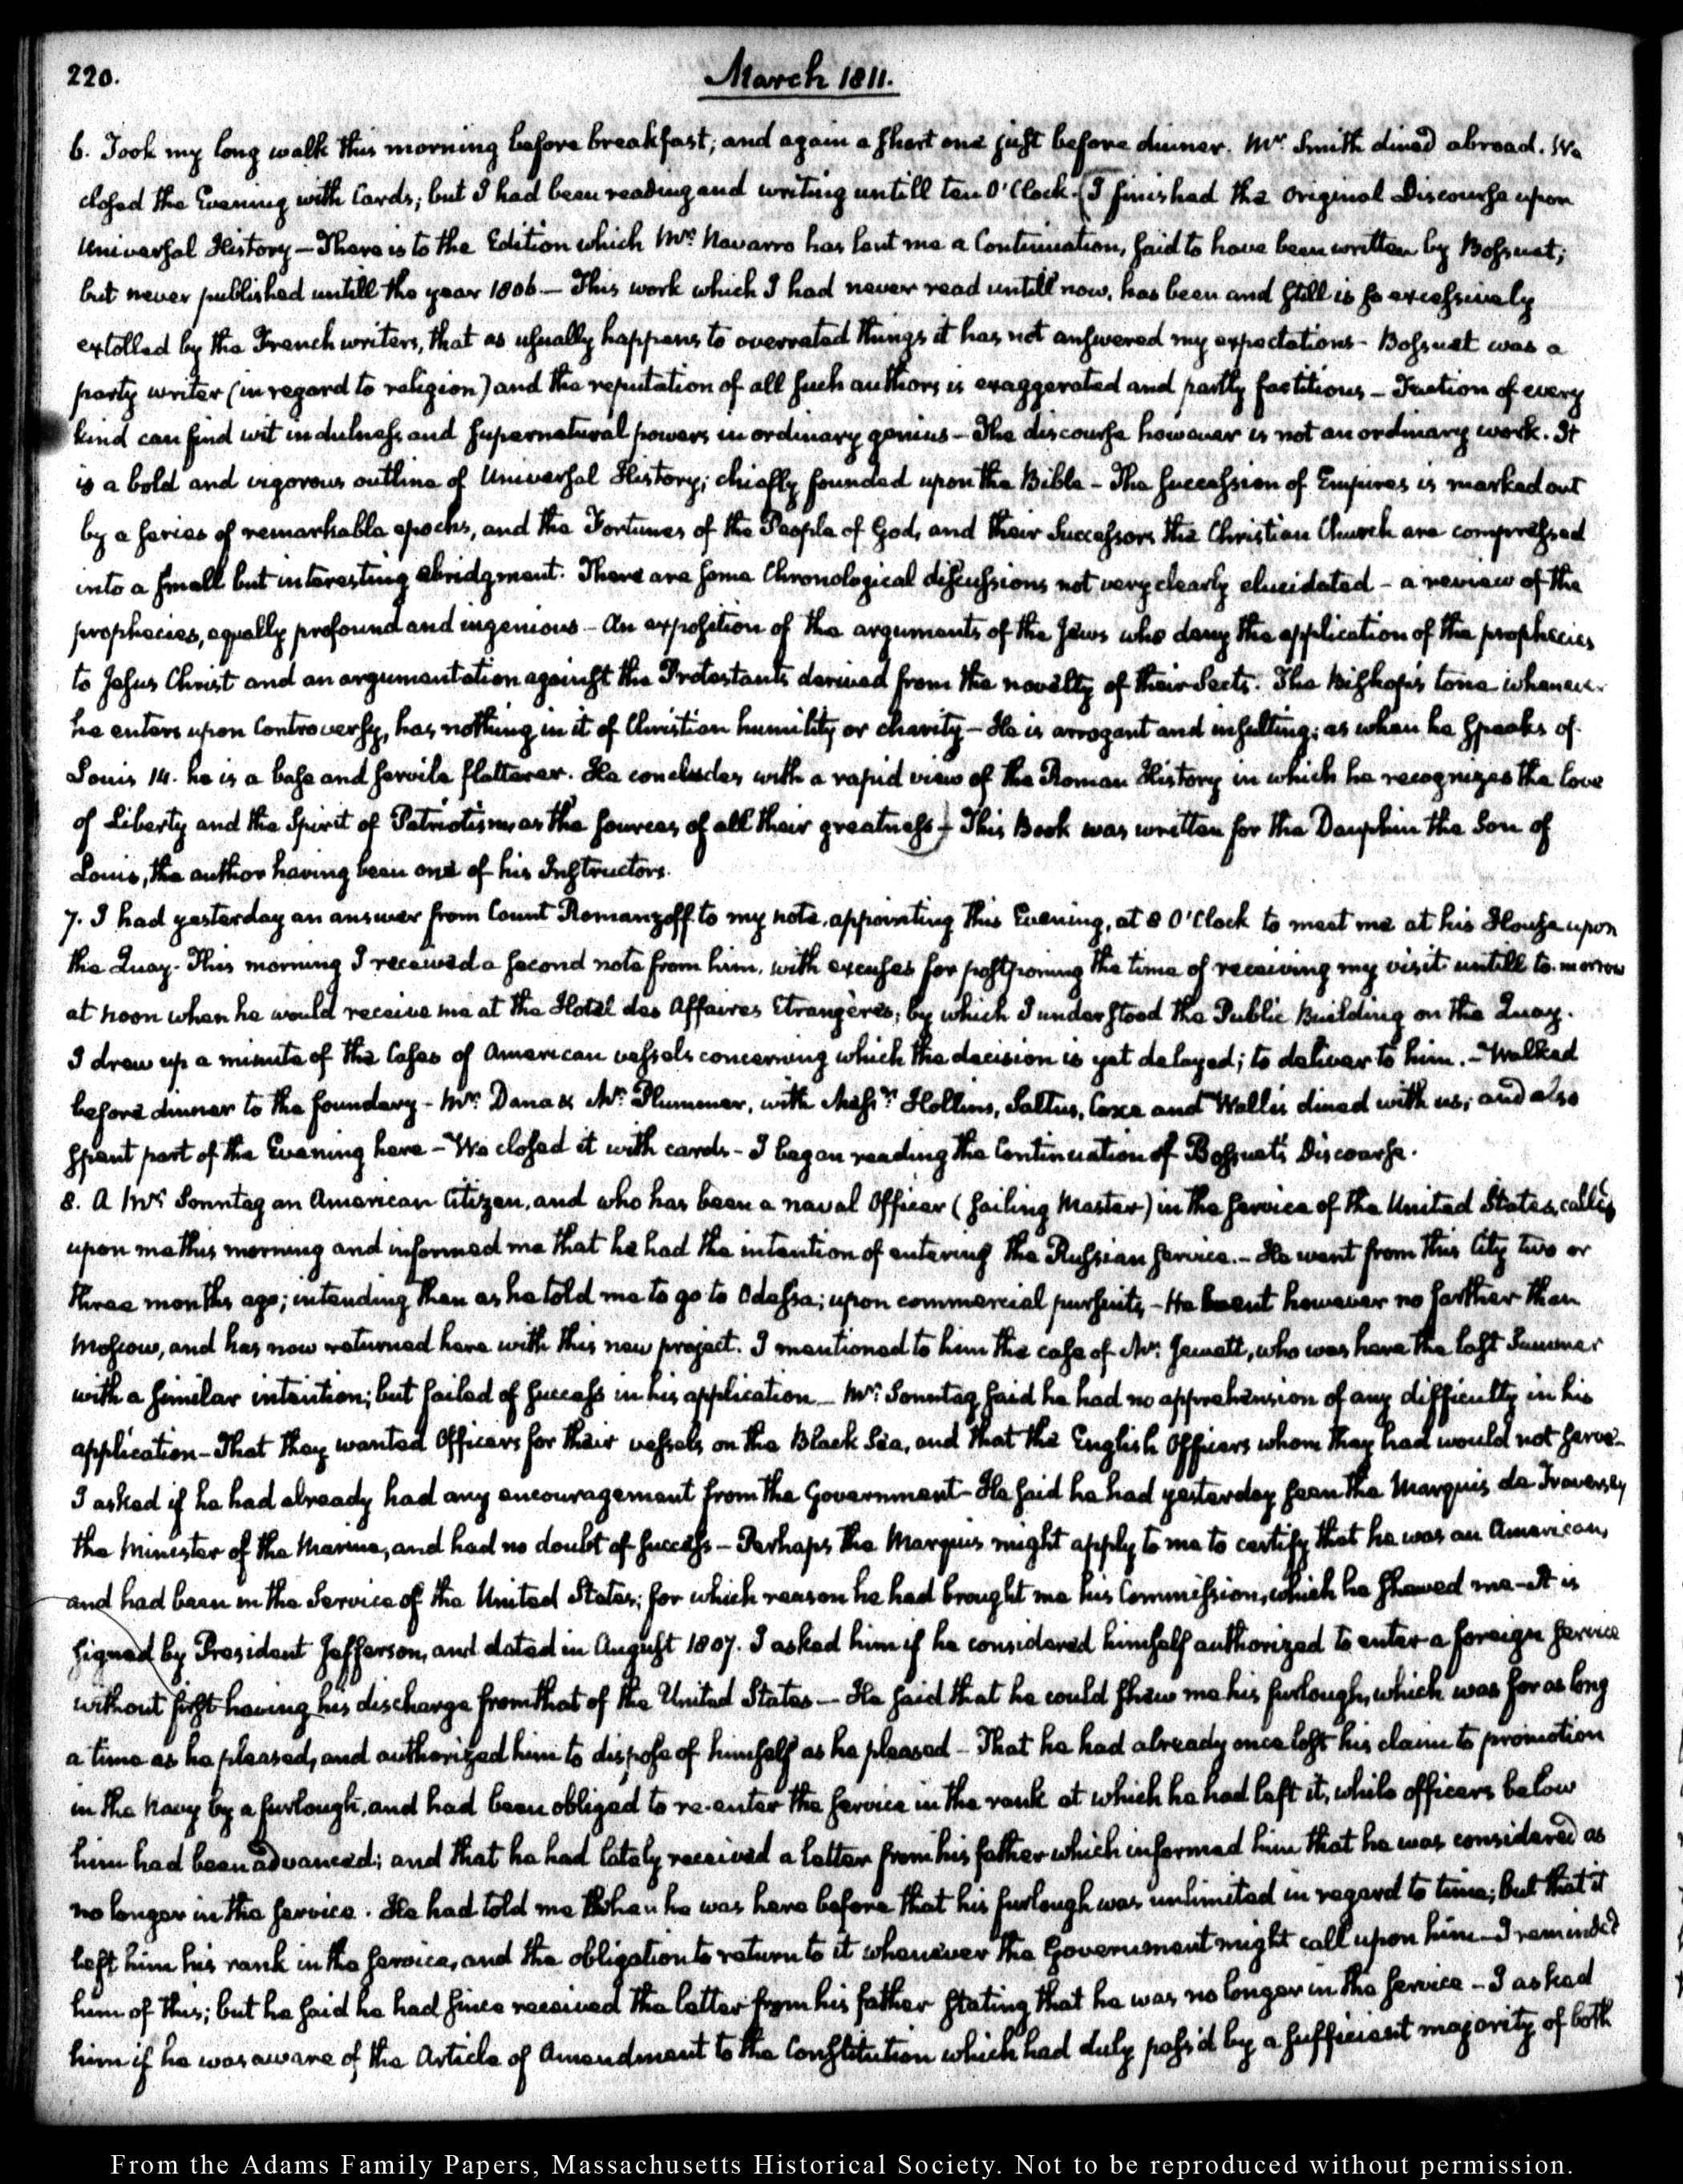 220.
March 1811.
6. Took my long walk this morning before breakfast; and again a short one just before dinner. Mr. Smith dined abroad. We
closed the Evening with Cards; but I had been reading and writing untill ten O'Clock. (I finished the original Discourse upon
Universal History — There is to the Edition which Mr. Navarro has lent me a Continuation, said to have been written by Bossuet;
but never published untill the year 1806 — This work which I had never read untill now, has been and still is so excessively
extolled by the French writers, that as usually happens to overrated things it has not answered my expectations — Bossuet was a
party writer (in regard to religion) and the reputation of all such authors is exaggerated and partly factitious — Faction of every
kind can find wit in dulness and supernatural powers in ordinary genius — The discourse however is not an ordinary work. It
is a bold and vigorous outline of Universal History; chiefly founded upon the Bible — The succession of Empires is marked out
by a series of remarkable epochs, and the Fortunes of the People of God, and their Successors the Christian Church are compressed
into a small but interesting abridgment. There are some Chronological discussions not very clearly elucidated — a review of the
prophecies, equally profound and ingenious — An exposition of the arguments of the Jews who deny the application of the prophecies
to Jesus Christ and an argumentation against the Protestants derived from the novelty of their Sects. The Bishop's tone whenever
he enters upon Controversy, has nothing in it of Christian humility or charity — He is arrogant and insulting; as when he speaks of
Louis 14. he is a base and servile flatterer. He concludes with a rapid view of the Roman History in which he recognizes the love
of Liberty and the Spirit of Patriotism, as the sources of all their greatness) — This Book was written for the Dauphin the Son of
Louis, the author having been one of his Instructors.
7. I had yesterday an answer from Count Romanzoff to my note, appointing this Evening, at 8 O'Clock to meet me at his House upon
the Quay. This morning I received a second note from him, with excuses for postponing the time of receiving my visit untill to-morrow
at noon when he would receive me at the Hotel des Affaires Etrangères; by which I understood the Public Building on the Quay.
I drew up a minute of the Cases of American vessels concerning which the decision is yet delayed; to deliver to him. — Walked
before dinner to the foundery — Mr. Dana & Mr. Plummer, with Messrs. Hollins, Saltus, Coxe and Wallis dined with us; and also
spent part of the Evening here — We closed it with cards — I began reading the Continuation of Bossuet's Discourse.
8. A Mr. Sonntag an American Citizen, and who has been a naval Officer (sailing Master) in the service of the United States, called
upon me this morning and informed me that he had the intention of entering the Russian service. — He went from this City two or
three months ago; intending then as he told me to go to Odessa; upon commercial pursuits — He went however no farther than
Moscow, and has now returned here with this new project. I mentioned to him the case of Mr. Jewett, who was here the last Summer
with a similar intention; but failed of success in his application — Mr. Sonntag said he had no apprehension of any difficulty in his
application — That they wanted Officers for their vessels on the Black Sea, and that the English Officers whom they had would not serve —
I asked if he had already had any encouragement from the Government — He said he had yesterday seen the Marquis de Traversey
the Minister of the Marine, and had no doubt of success — Perhaps the Marquis might apply to me to certify that he was an American,
and had been in the Service of the United States; for which reason he had brought me his Commission, which he shewed me — It is
signed by President Jefferson, and dated in August 1807. I asked him if he considered himself authorized to enter a foreign service
without first having his discharge from that of the United States — He said that he could shew me his furlough, which was for as long
a time as he pleased, and authorized him to dispose of himself as he pleased — That he had already once lost his claim to promotion
in the Navy by a furlough, and had been obliged to re-enter the service in the rank at which he had left it, while officers below
him had been advanced; and that he had lately received a letter from his father which informed him that he was considered as
no longer in the service. He had told me when he was here before that his furlough was unlimited in regard to time; but that it
left him his rank in the service, and the obligation to return to it whenever the Government might call upon him — I reminded
him of this; but he said he had since received the letter from his father stating that he was no longer in the service — I asked
him if he was aware of the Article of Amendment to the Constitution which had duly pass'd by a sufficient majority of both
From the Adams Family Papers, Massachusetts Historical Society. Not to be reproduced without permission.